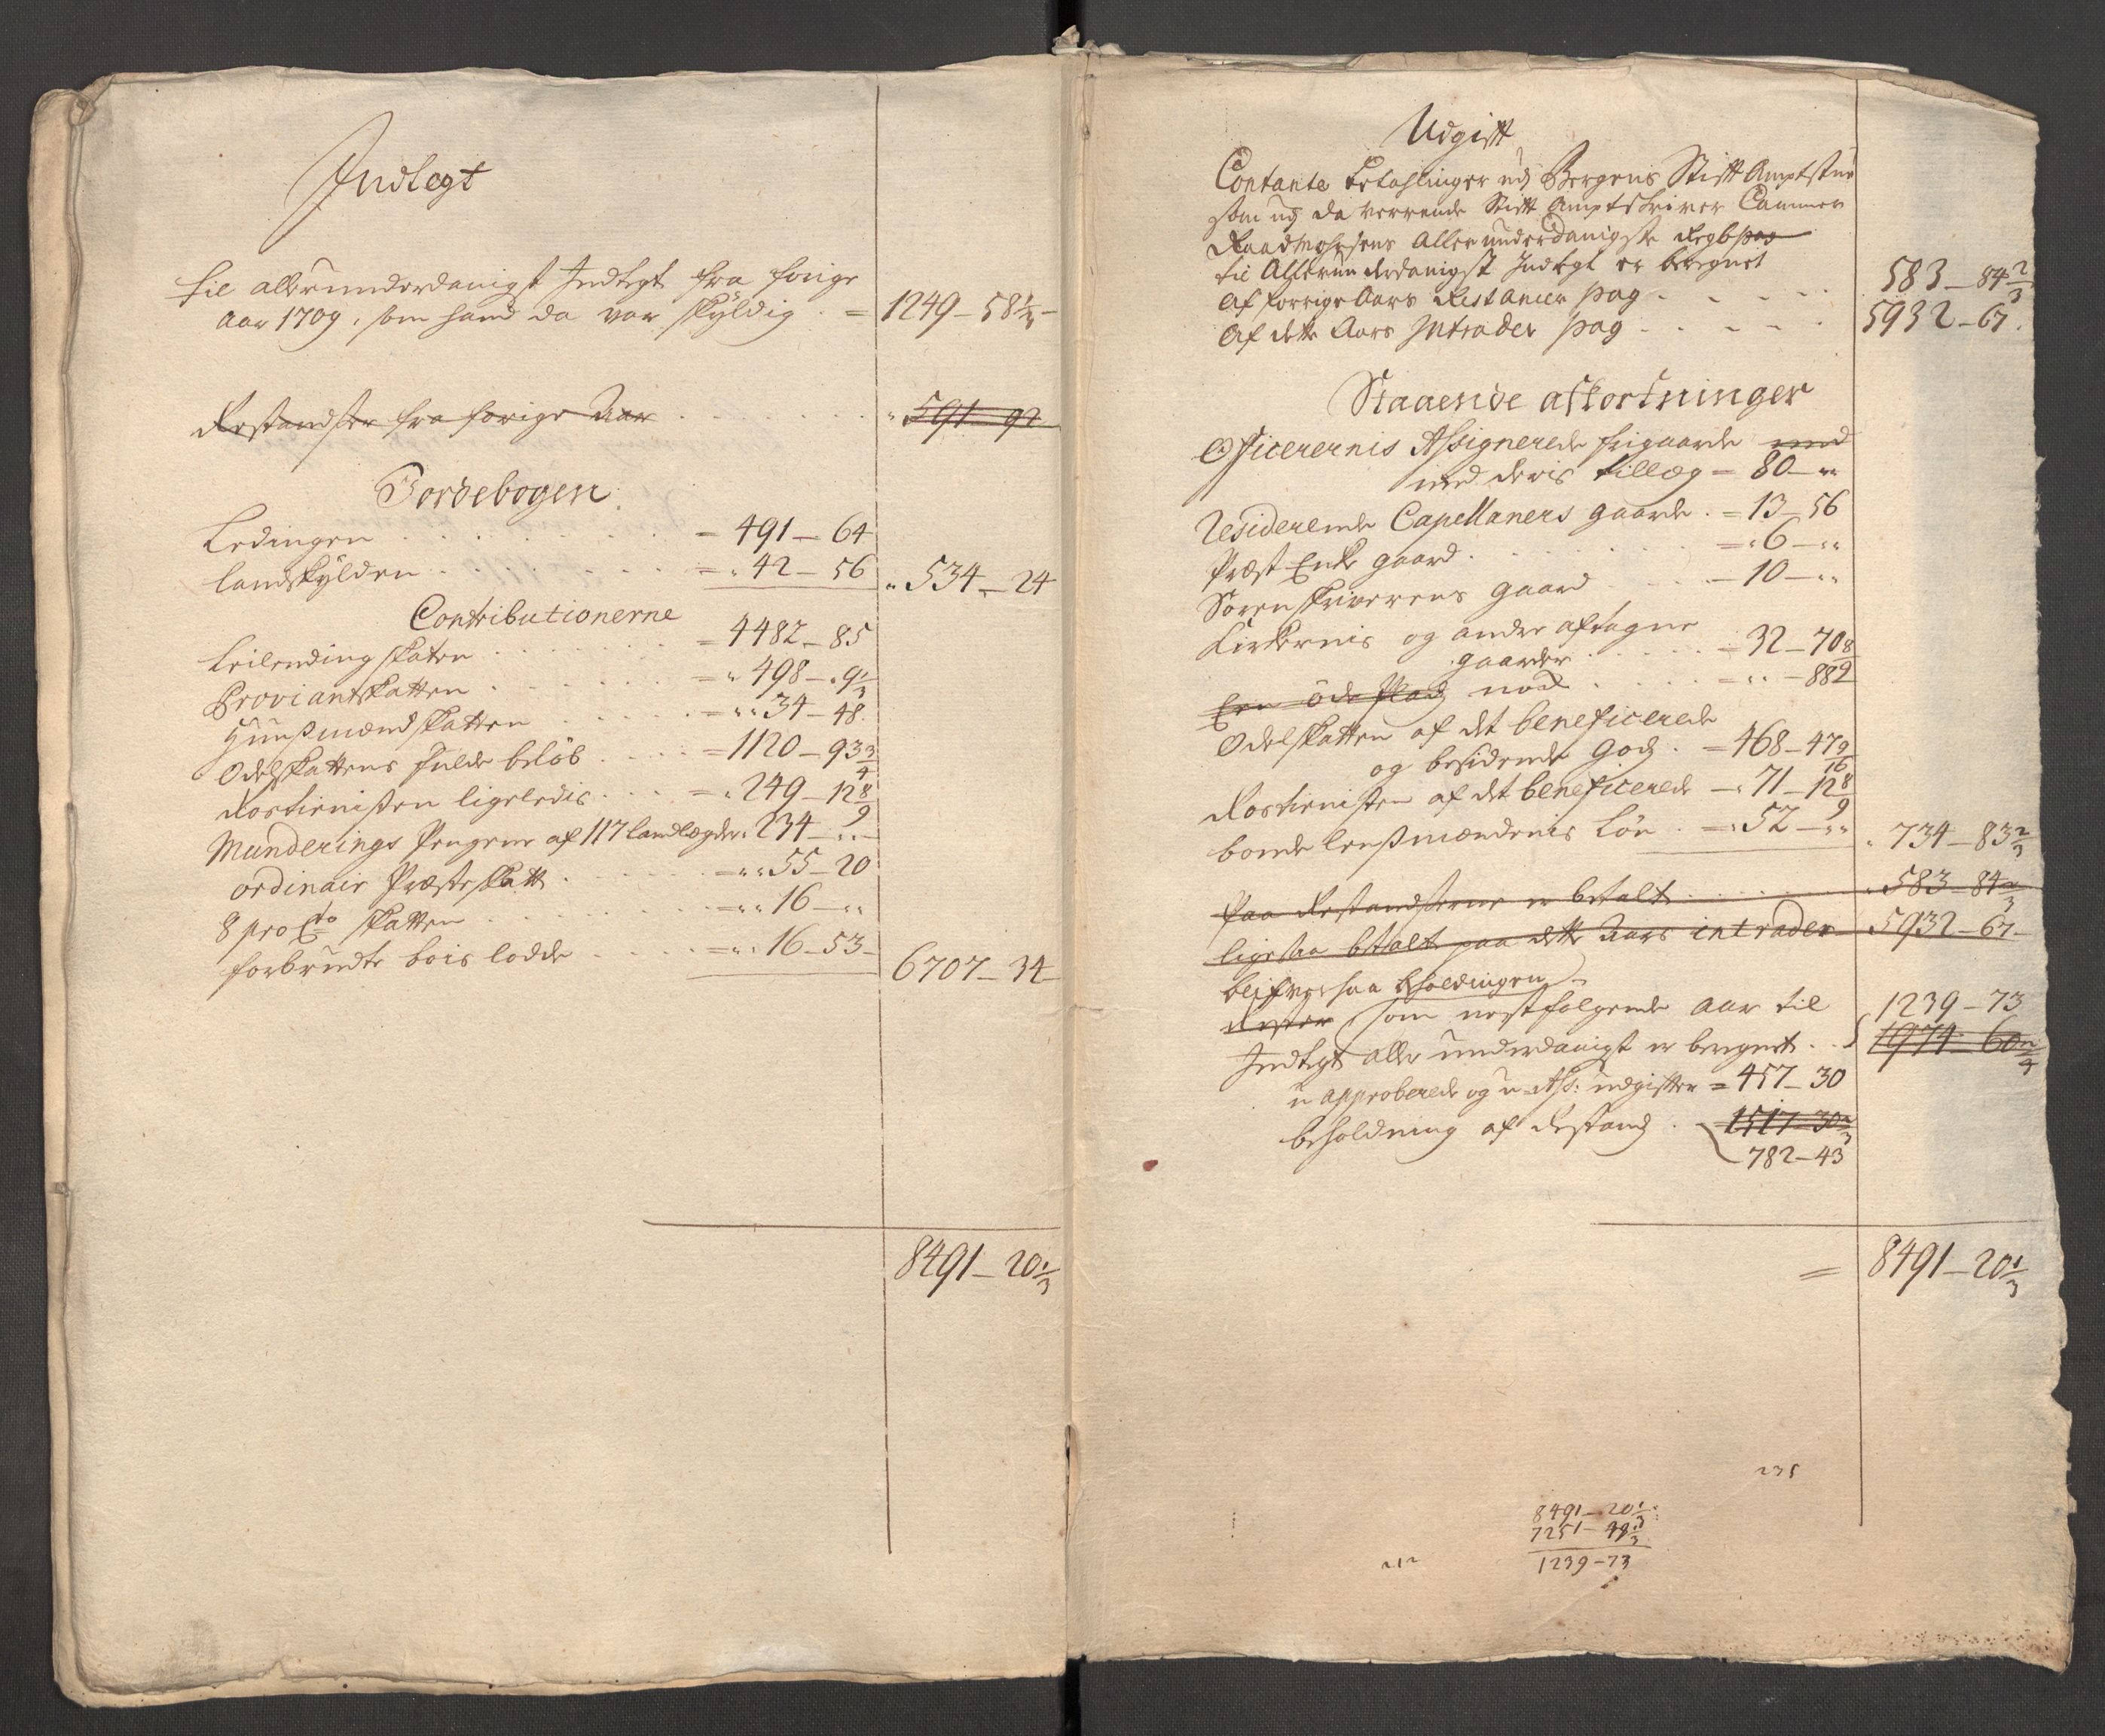 Indtegt
til allerunderdanigst Indtegt fra forige
aar 1709, som hand da var skÿldig . = 1249 – 58 1/3 –
Restandser fra forige Aar . . . . . . " 591 – 92
Jordebogen
Ledingen . . . . . . . = 491 – 64
landskÿlden . . . . . . = " 42 – 56 " 534 – 24
Contributionerne
Leilending skaten . . . . . . = 4482 – 85
Proviantskatten . . . . . = " 498 – " 9 1/3
Huusmændskatten . . . . = "" 34 – 48
Odelskattens fulde beløb . . . . = 1120 – 93 3/4
Rostienisten ligeledis . . . = " 249 – 12 8/9
Munderings Pengene af 117 landlægder " 234 – ""
ordinair Præsteskatt . . . . . = "" 55 – 20
8 pro Cto skatten . . . . . . = "" 16 – ""
forbrudte bois lodde . . . . = "" 16 – 53 –
6707 – 34 –
8491 – 20 1/3
Udgift
Contante betahlinger udj Bergens Stift Amptstue
som udj da verrende Stift Amptskriver Cammer
Raad Allerunderdanigste Regb pag
til Allerunderdanigst Indtegt er beregnet
af forrige Aars Restancer pag . . . . . 583 – 84 2/3
Af dette Aars Intrader pag . . . . . 5932 – 67.
Staaende afkortninger
Officerernis Assignerede frigaarde med
med deris tillæg = 80 – ""
Residerende Capellaners gaarde . = 13 – 56
Præst Enke gaard . . . . . . = " 6 – ""
Sorenskriverens gaard . . . – 10 – ""
Kirkernis og andre aftagne
gaarder . . . . . = 32 – 70
Een øde Plads nock . . . . = "" – 88 8/9
Odelskatten af det beneficerede
og besidende godz . = 468 – 47 9/16
Rostienisten af det beneficerede – " 71 – 12 8/9
bonde lensmændenis Løn . = " 52 – "" " 734 – 83 2/3
Paa Restandserne er betalt . . . . . 583 – 84 2/3
ligesaa betalt paa dette Aars intrader " 5932 – 67 –
blifver saa beholdingen
Rester som nestfølgende aar til 1239 – 73
Indtegt allerunderdanigst er beregnet . . 1974 – 60 2/4
u approberede og u Ass: udgifter = 457 – 30
beholdning af Restandz . 1517 – 30 2/3
782 – 43
= 8491 – 20 1/3
235
8491 – 20 1/3
7251 – 48 1/3
212
1239 – 73